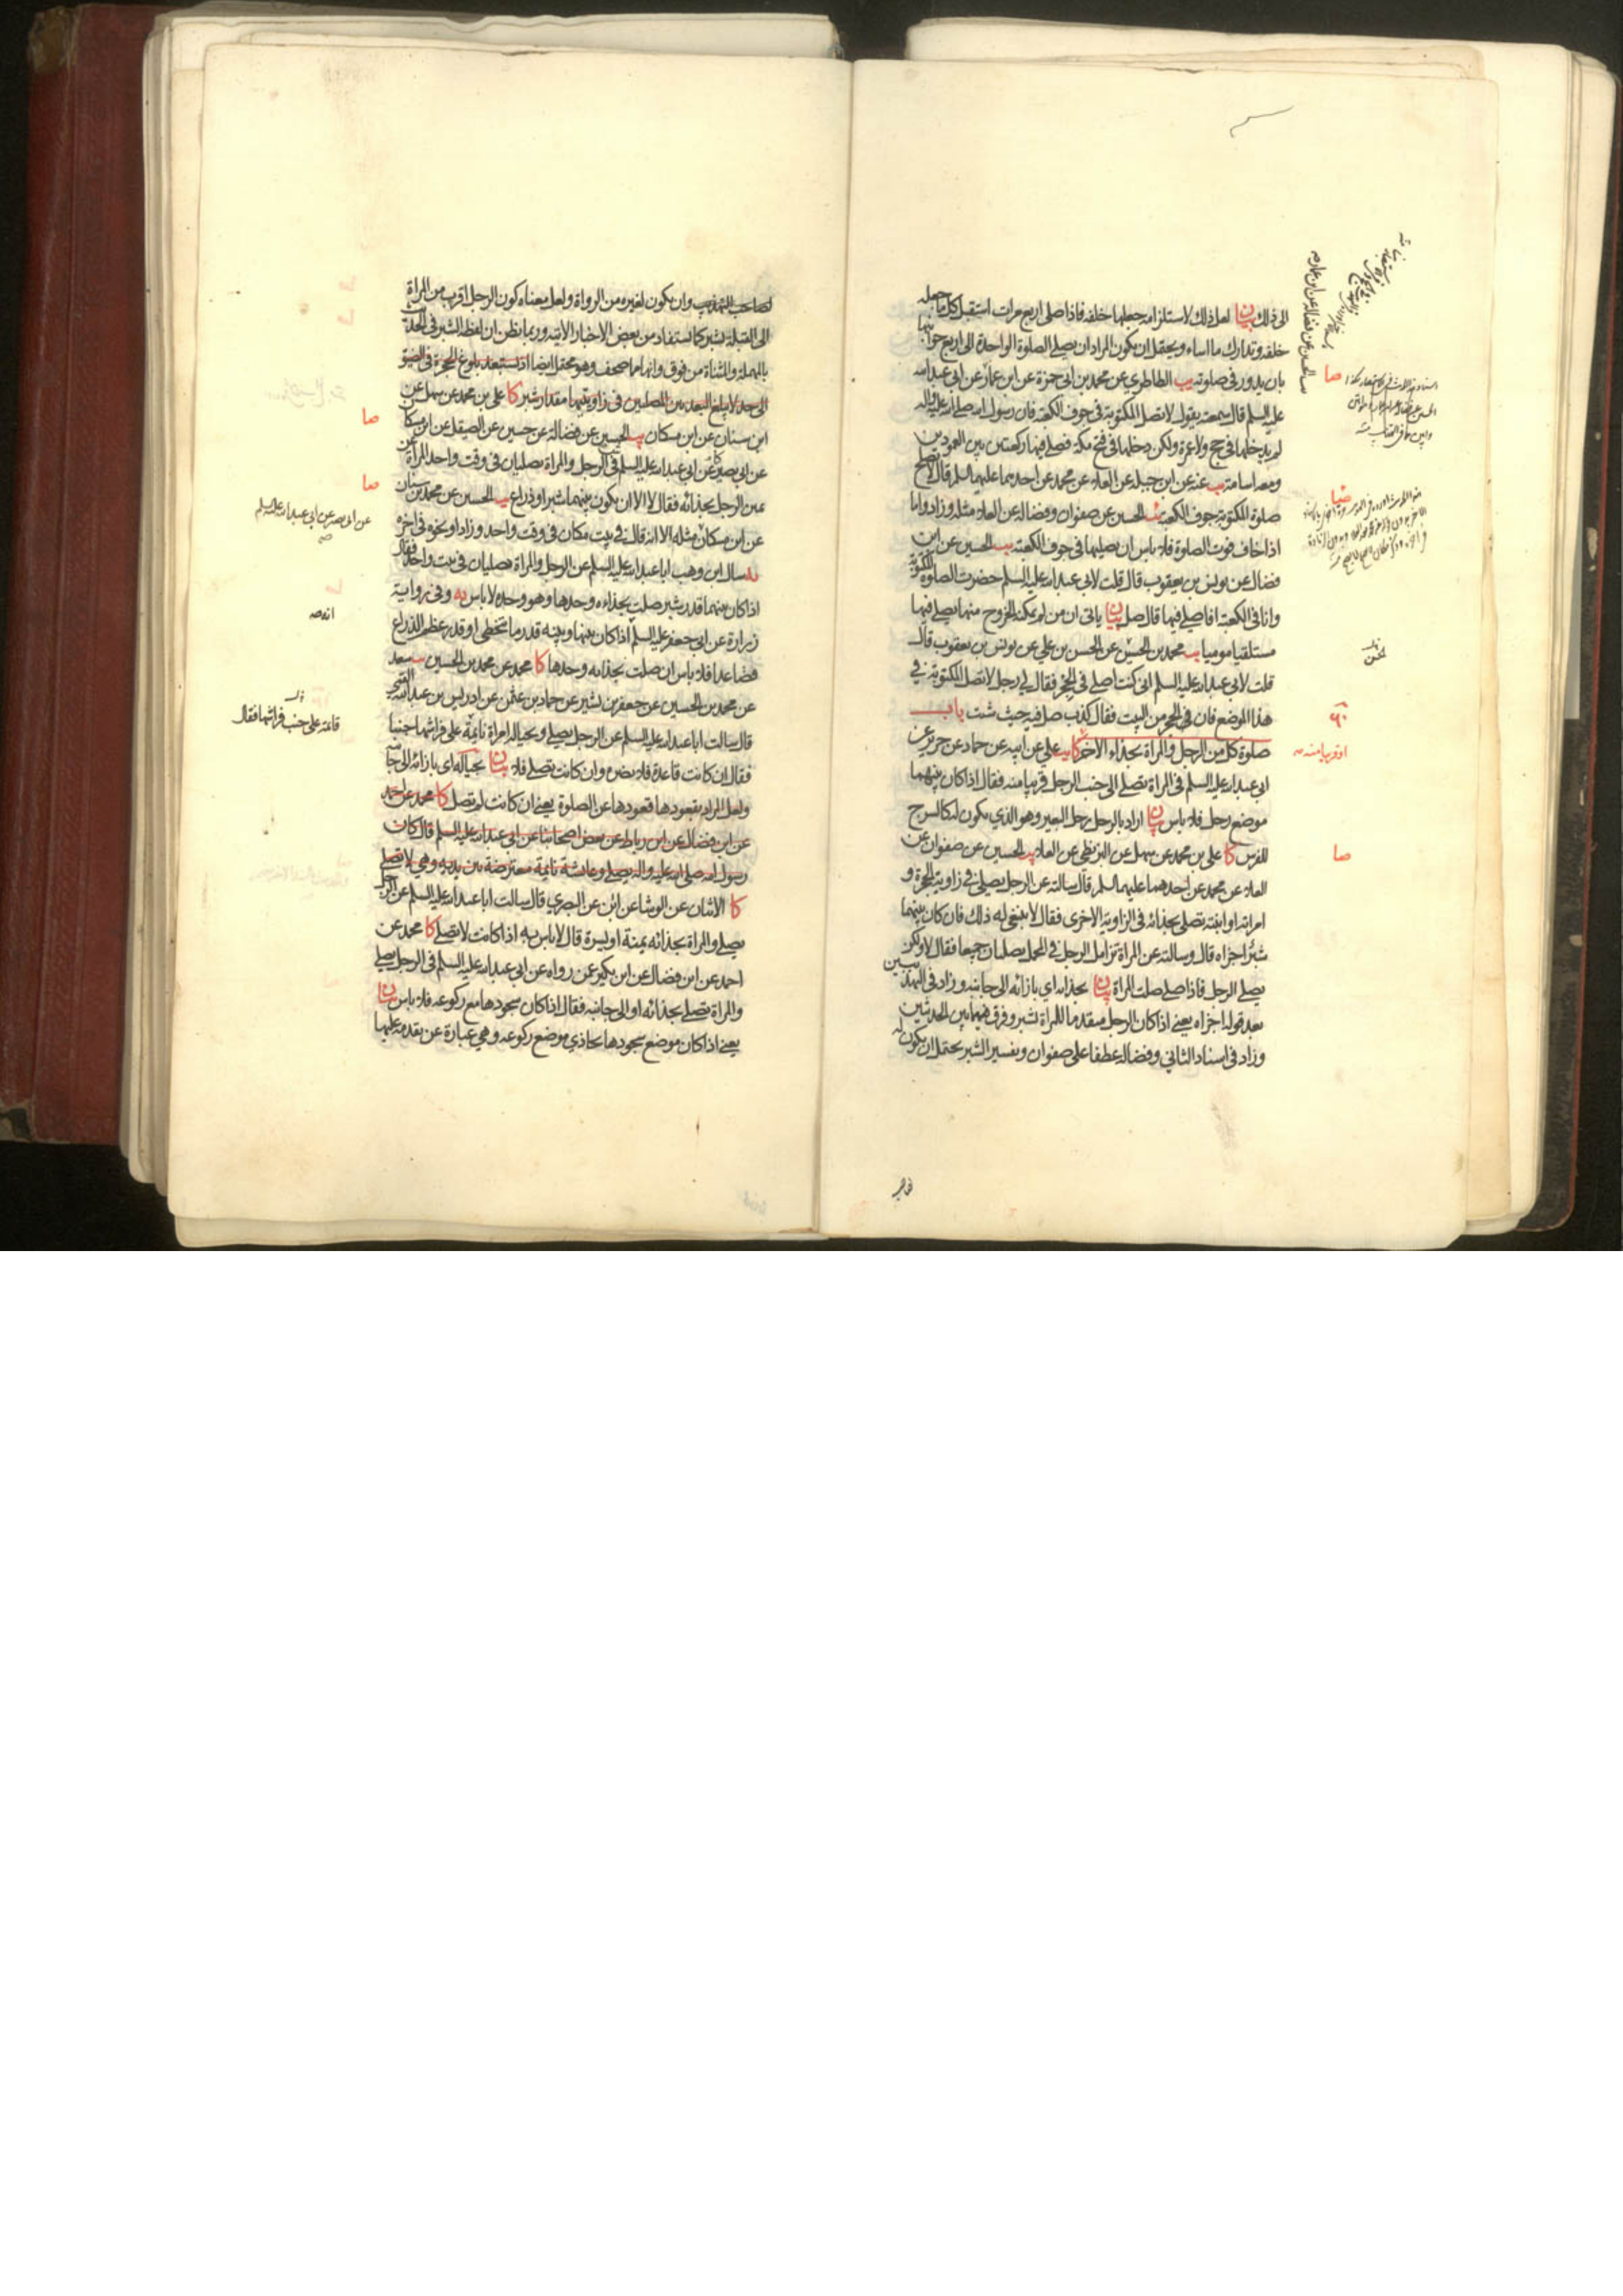 الى ذلك بيان لعل ذلك لاستلزامه جعلها خلفه فاذا صلى اربع مرات استقبل كل ما جعله
خلفه وتدارك ما اساء ويحتمل ان يكون المراد ان يصلي الصلوة الواحدة الى اربع جوانبها
بان يدور في صلوته يب الطاطري عن محمد بن ابي حمزة عن ابن عمار عن ابي عبد الله
عليه السلم قال سمعته يقول لا تصل المكتوبة في جوف الكعبة فان رسول الله صلى الله عليه واله
لم يدخلها في حج ولا عمرة ولكن دخلها في فتح مكة فصلى فيها ركعتين بين العمودين
ومعه اسامة يب عنه عن ابن جبلة عن العلاء عن محمد عن احدهما عليهما السلم قال لا تصلح
صلوة المكتوبة جوف الكعبة يب الحسين عن صفوان وفضالة عن العلاء مثله وزاد واما
اذا خاف فوت الصلوة فلا باس ان يصليها في جوف الكعبة يب الحسين عن ابن
فضال عن يونس بن يعقوب قال قلت لابي عبد الله عليه السلم حضرت الصلوة المكتوبة
وانا في الكعبة افاصلي فيها قال صل بيان ياتي ان من لم يمكنه الخروج منها يصلي فيها
مستلقيا موميا يب محمد بن الحسين عن الحسن بن علي عن يونس بن يعقوب قال
قلت لابي عبد الله عليه السلم اني كنت اصلي في الحجر فقال لي رجل لا تصل المكتوبة في
هذا الموضع فان في الحجر من البيت فقال كذب صل فيه حيث شئت باب
صلوة كل من الرجل والمراة بحذاء الاخر كا يب علي عن ابيه عن حماد عن حريز عن
ابي عبد الله عليه السلم في المراة تصلي الى جنب الرجل قريبا منه فقال اذا كان بينهما
موضع رحل فلا باس بيان اراد بالرحل رحل البعير وهو الذي يكون له كالسرج
للفرس كا علي بن محمد عن سهل عن البزنطي عن العلاء يب الحسين عن صفوان عن
العلاء عن محمد عن احدهما عليهما السلم قال سالته عن الرجل يصلي في زاوية الحجرة و
امراته او ابنته تصلي بحذائه في الزاوية الاخرى فقال لا ينبغي له ذلك فان كان بينهما
شبر اجزاه قال وسالته عن المراة تزامل الرجل في المحمل يصليان جميعا فقال لا ولكن
يصلي الرجل فاذا صلى صلت المراة بيان بحذائه اي بازائه الى جانبه وزاد في التهذيبين
بعد قوله اجزاه يعني اذا كان الرجل متقدما للمراة بشبر وفرق فيهما بين الحديثين
وزاد في اسناد الثاني وفضالة عطفا على صفوان وتفسير الشبر يحتمل ان يكون
صا
صا
لصاحب التهذيب وان يكون لغيره من الرواة ولعل معناه كون الرجل اقرب من المراة
الى القبلة بشبر كما يستفاد من بعض الاخبار الاتية وربما يظن ان لفظة الشبر في الحديث
بالمهملة والمثناة من فوق وانهامما صحف وهو محتمل ايضا اذ تستبعد بلوغ الحجرة في الضيق
الى حد لا يبلغ البعد بين المصليين في زاويتيهما مقدار شبر كا علي بن محمد عن سهل عن
ابن سنان عن ابن مسكان يب الحسين عن فضالة عن حسين عن الصيقل عن ابن مسكان
عن ابي بصير عن ابي عبد الله عليه السلم في الرجل والمراة يصليان في وقت واحد المراة عن
يمين الرجل بحذائه فقال لا الا ان يكون بينهما شبر او ذراع يب الحسين عن محمد بن سنان
عن ابن مسكان مثله الا انه قال في بيت مكان في وقت واحد وزاد او نحوه في اخره
يه سال ابن وهب ابا عبد الله عليه السلم عن الرجل والمراة يصليان في بيت واحد فقال
اذا كان بينهما قدر شبر صلت بحذاءه وحدها وهو وحده لا باس يه وفي رواية
زرارة عن ابي جعفر عليه السلم اذا كان بينها وبينه قدر ما يتخطى او قدر عظم الذراع
فصاعدا فلا باس ان صلت بحذائه وحدها كا محمد عن محمد بن الحسين يب سعد
عن محمد بن الحسين عن جعفر بن بشير عن حماد بن عثمن عن ادريس بن عبد الله القمي
قال سالت ابا عبد الله عليه السلم عن الرجل يصلي وبحياله امراة نائمة على فراشها جنبا
فقال ان كانت قاعدة فلا يضره وان كانت تصلي فلا بيان بحياله اي بازائه الى جانبه
ولعل المراد بقعودها قعودها عن الصلوة يعني ان كانت لم تصل كا محمد عن احمد
عن ابن فضال عن ابن رباط عن بعض اصحابنا عن ابي عبد الله عليه السلم قال كان
رسول الله صلى الله عليه واله يصلي وعائشة نائمة معترضة بين يديه وهي لا تصلي
كا الاثنان عن الوشا عن ابن عن البصري قال سالت ابا عبد الله عليه السلم عن الرجل
يصلي والمراة بحذائه يمنة او يسرة قال لا باس به اذا كانت لا تصلي كا محمد عن
احمد عن ابن فضال عن ابن بكير عمن رواه عن ابي عبد الله عليه السلم في الرجل يصلي
والمراة تصلي بحذائه او الى جانبه فقال اذا كان سجودها مع ركوعه فلا باس بيان
يعني اذا كان موضع سجودها يحاذي موضع ركوعه وهي عبارة عن تقدمه عليها
صا
صا
عن ابي بصير عن ابي عبد الله عليه السلم
قاعدة على جنب فراشها فقال